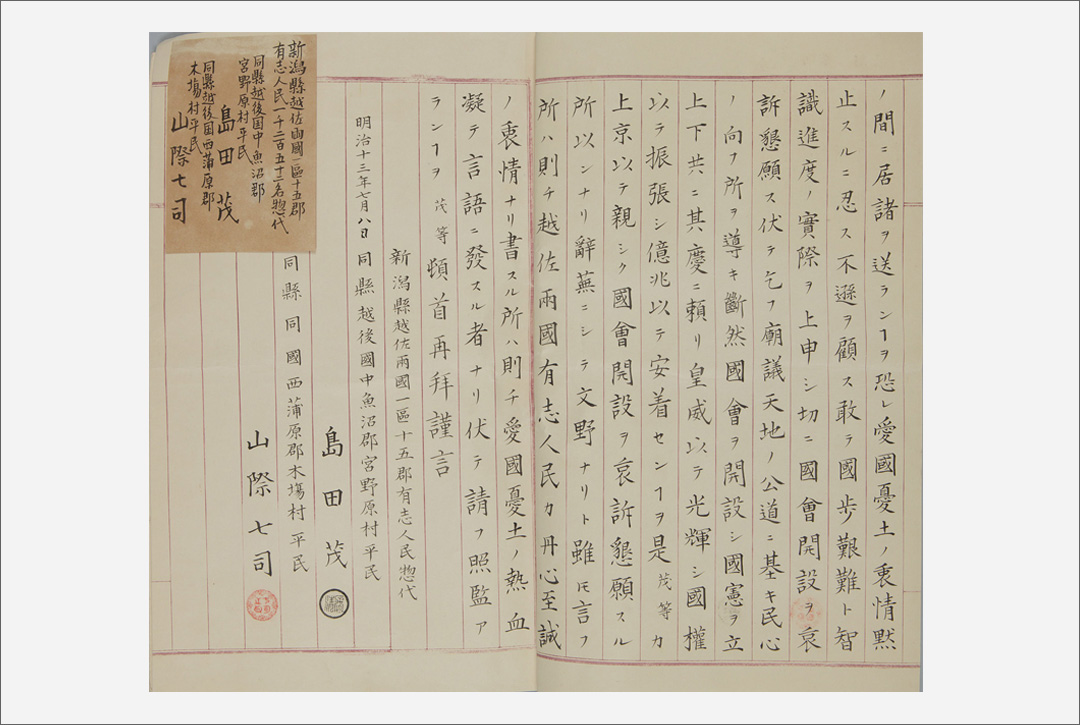 ノ間ニ居諸ヲ送ランヿヲ恐レ愛國憂土ノ衷情黙
止スルニ忍ス不遜ヲ顧ス敢テ國歩艱難ト智
識進度ノ實際ヲ上申シ切ニ國會開設ヲ哀
訴懇願ス伏テ乞フ廟議天地ノ公道ニ基キ民心
ノ向フ所ヲ導キ斷然國會ヲ開設シ國憲ヲ立
上下共ニ其慶ニ頼リ皇威以テ光輝シ國權
以テ振張シ億兆以テ安着センヿヲ是茂等カ
上京以テ親シク國會開設ヲ哀訴懇願スル
所以ンナリ辭蕪ニシテ文野ナリト雖モ言フ
所ハ則チ越佐兩國有志人民カ丹心至誠
ノ衷情ナリ書スル所ハ則チ愛國憂土ノ熱血
凝テ言語ニ發スル者ナリ伏テ請フ照監ア
ランヿヲ茂等頓首再拜謹言
新潟縣越佐兩國一區十五郡有志人民惣代
明治十三年七月八日同縣越後國中魚沼郡宮野原村平民
島田茂
同縣同國西蒲原郡木塲村平民
山際七司
新潟縣越佐両國一區十五郡
有志人民一千二百五十二名惣代
同縣越後国中魚沼郡
宮野原村平民
島田茂
同縣越後国西蒲原郡
木塲村平民
山際七司